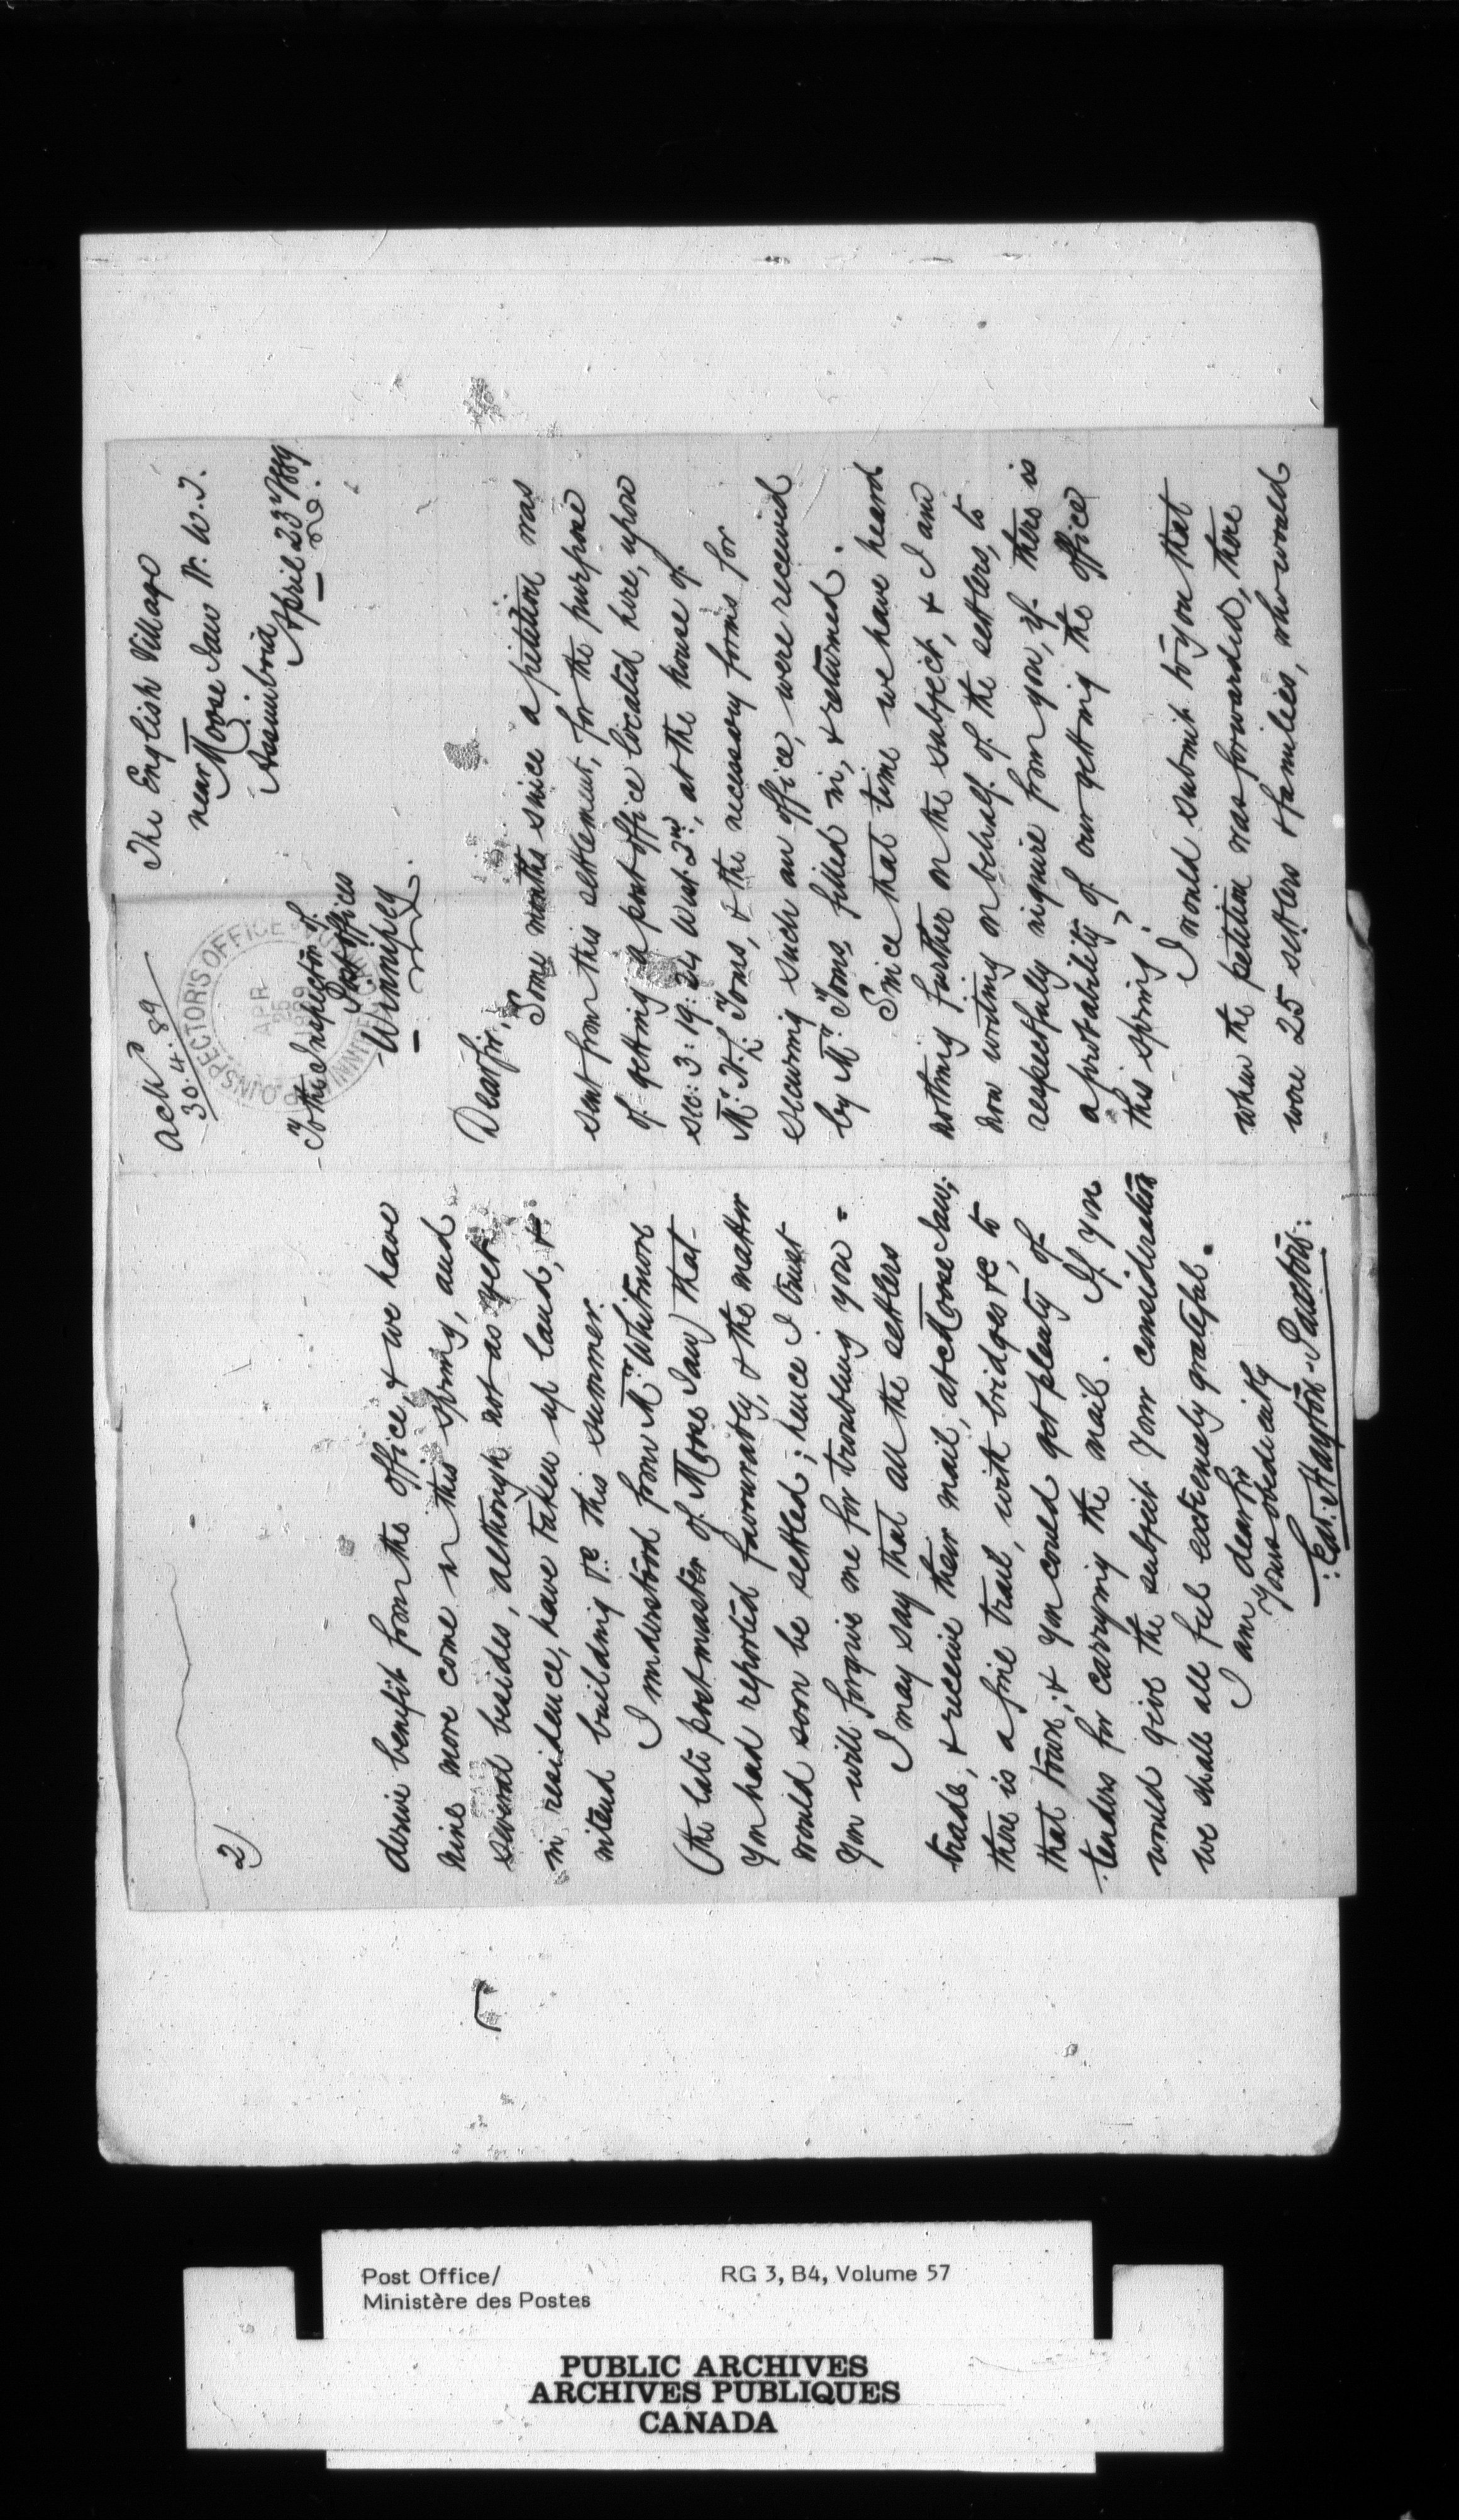 Ack^d
30.4.89
P.O. INSPECTOR'S OFFICE
APR
25
1889
WINNIPEG
The English Village
near Moose Jaw N. W. T.
Assiniboia
April 23rd 1889
To the Inspector of
Post Offices
Winnipeg
Dear Sir,
Some months since a petition was
sent from this settlement, for the purpose
of getting a post office located here, upon
sec: 3: 19: 24 West 2nd, at the house of
Mr. H. L. Toms, & the necessary forms for
securing such an office, were received
by Mr. Toms, filled in, & returned.
Since that time we have heard
nothing further on the subject, & I am
now writing on behalf of the settlers, to
respectfully inquire from you, if there is
a probability of our getting the office
this spring?
I would submit to you that
when the petition was forwarded, there
were 25 settlers & families, who would
2)
derive benefit from the office, & we have
nine more come in this spring, and
several besides, although not as yet
in residence, have taken up land, &
intend building &c this summer.
I understood from Mr. Whitmore
(the late postmaster of Moose Jaw) that
you had reported favourably, & the matter
would soon be settled; hence I trust
you will forgive me for troubling you =
I may say that all the settlers
trade, & receive their mail, at Moose Jaw;
there is a fine trail, with bridges &c, to
that town; & you could get plenty of
tenders for carrying the mail. If you
would give the subject your consideration
we shall all feel extremely grateful.
I am, dear Sir
Yours obediently
Ed: Hayton-
Post Office/
Ministère des Postes
RG 3, B4, Volume 57
PUBLIC ARCHIVES
ARCHIVES PUBLIQUES
CANADA